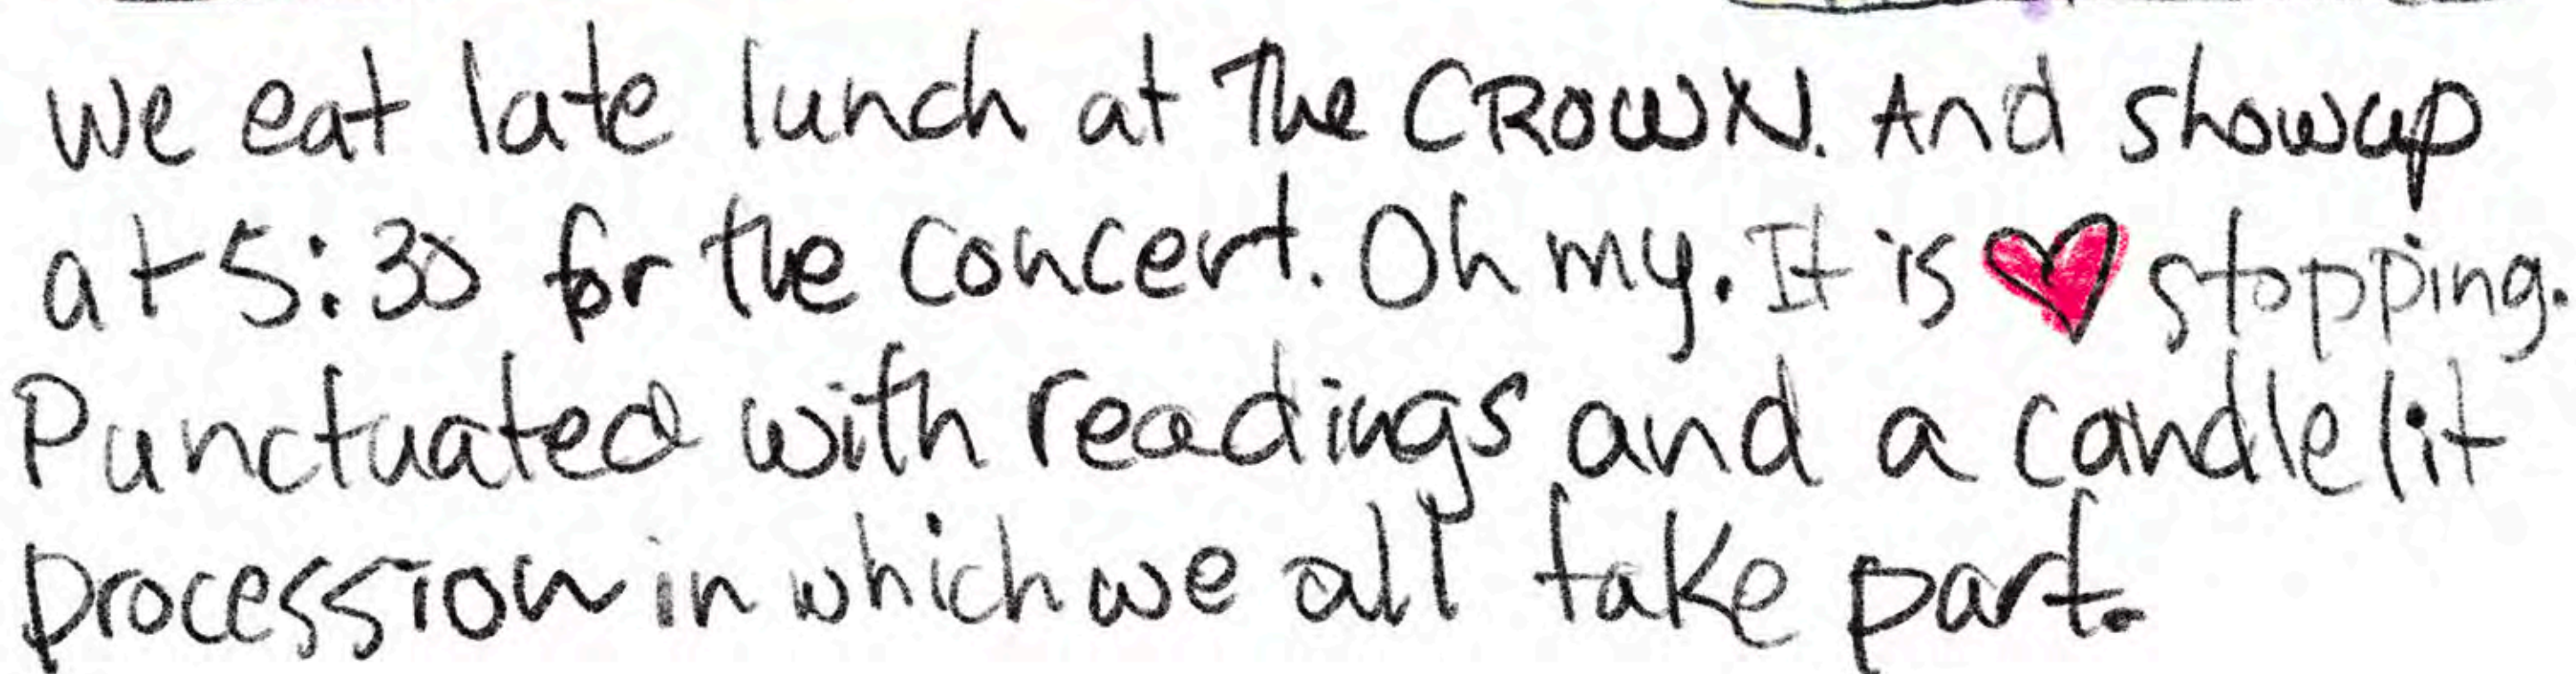 We eat late lunch at The CROWN. And show up
at 5:30 for the concert. Oh my. It is ♥ stopping.
Punctuated with readings and a candle lit
procession in which we all take part.